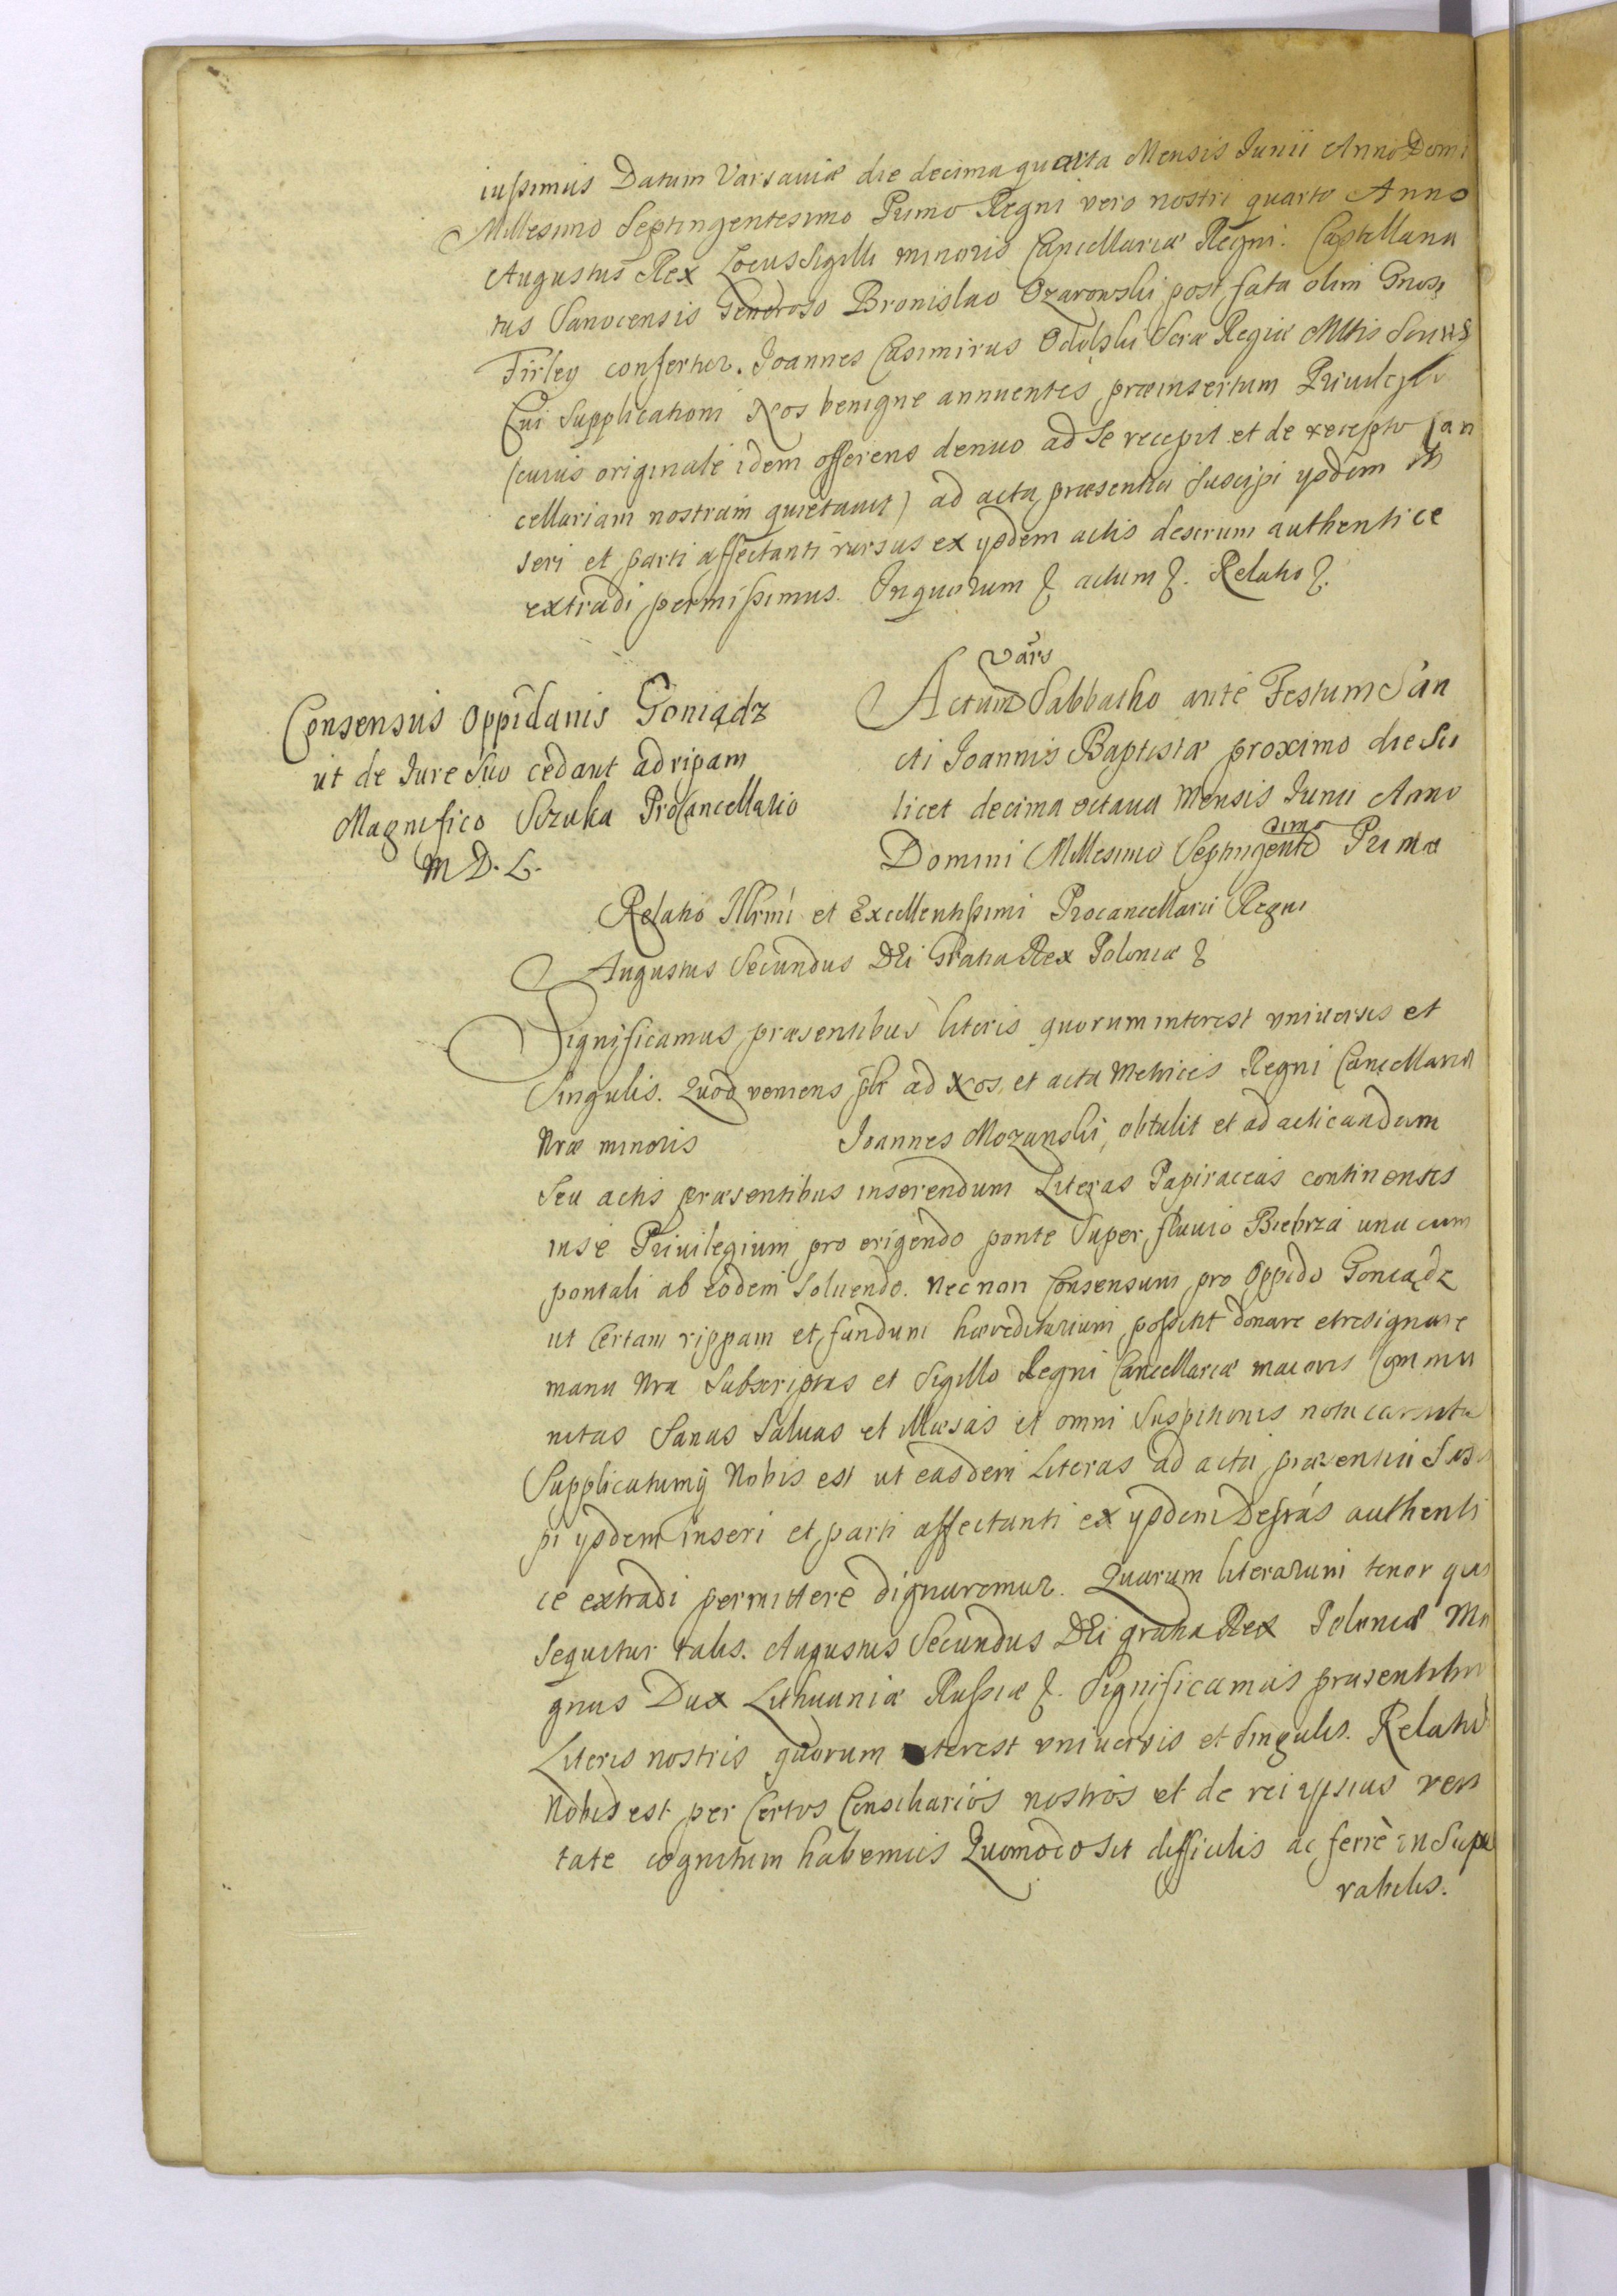 iussimus Datum Varsaviæ die decima quarta Mensis Junii Anno Domi
Millesimo Septingentesimo Primo Regni vero nostri quarto Anno
Augustus Rex Locus Sigilli minoris Cancellariæ Regni. Castellana
tus Sanocensis Generoso Bronislao Ozarowski post fata olim Gnosi
Firley confertur. Joannes Casimirus Odolski Sæ Regiæ Mttis Secrs
Cui Supplicationi Nos benigne annuentes præinsertum Privilegiu
(cuius originale idem offerens denuo ad se recepit et de recepto Can
cellariam nostram quietavit) ad acta præsentia suscipi ijsdem in
seri et parti affectanti rursus ex ijsdem actis descrium authentice
extradi permisimus. Inquorum &. actum &. Relatio &.
Consensus Oppidanis Goniądz
ut de Jure Suo cedant ad ripam
Magnifico Szczuka ProCancellario
M D. L.
Vars
Actum Sabbatho ante Festum San
cti Joannis Baptistæ proximo die Sci
licet decima octava Mensis Junii Anno
Domini Millesimo Septingentesimo Primo
Relatio Illrmi et Excellentissimi Procancellarii Regni
Augustus Secundus DEi Gratia Rex Poloniæ &
Significamus præsentibus literis quorum interest universis et
Singulis. Quod veniens plr ad Nos, et acta Metrices Regni Cancellariæ
Nræ minoris Joannes Mozanski, obtulit et ad acticandum
Seu actis præsentibus inserendum Literas Papiraceas continentes
in se Privilegium pro erigendo ponte Super fluvio Biebrza una cum
pontali ab eodem Solvendo. Nec non Consensum pro Oppido Goniądz
ut Certam rippam et fundum hæreditarium possint donare et resignare
manu Nra Subscriptas et Sigillo Regni Cancellariæ maioris Commu
nitas Sanas Salvas et Illæsas et omni Suspitionis nota carentes
Supplicatumq Nobis est ut easdem Literas ad acta præsentia Susci
pi ijsdem inseri et parti affectanti ex ijsdem Descras authenti
ce extradi permittere dignaremur. Quarum literarum tenor qui
Sequitur talis. Augustus Secundus DEi gratia Rex Poloniæ Ma
gnus Dux Lithuaniæ Russiæ &. Significamus præsentibus
Literis nostris quorum interest universis et Singulis. Relatu
Nobis est per Certos Consiliariós nostrós et de rei ipsius veri
tate cognitum habemus Quomodo sit difficilis ac ferrè in Supe
rabilis.